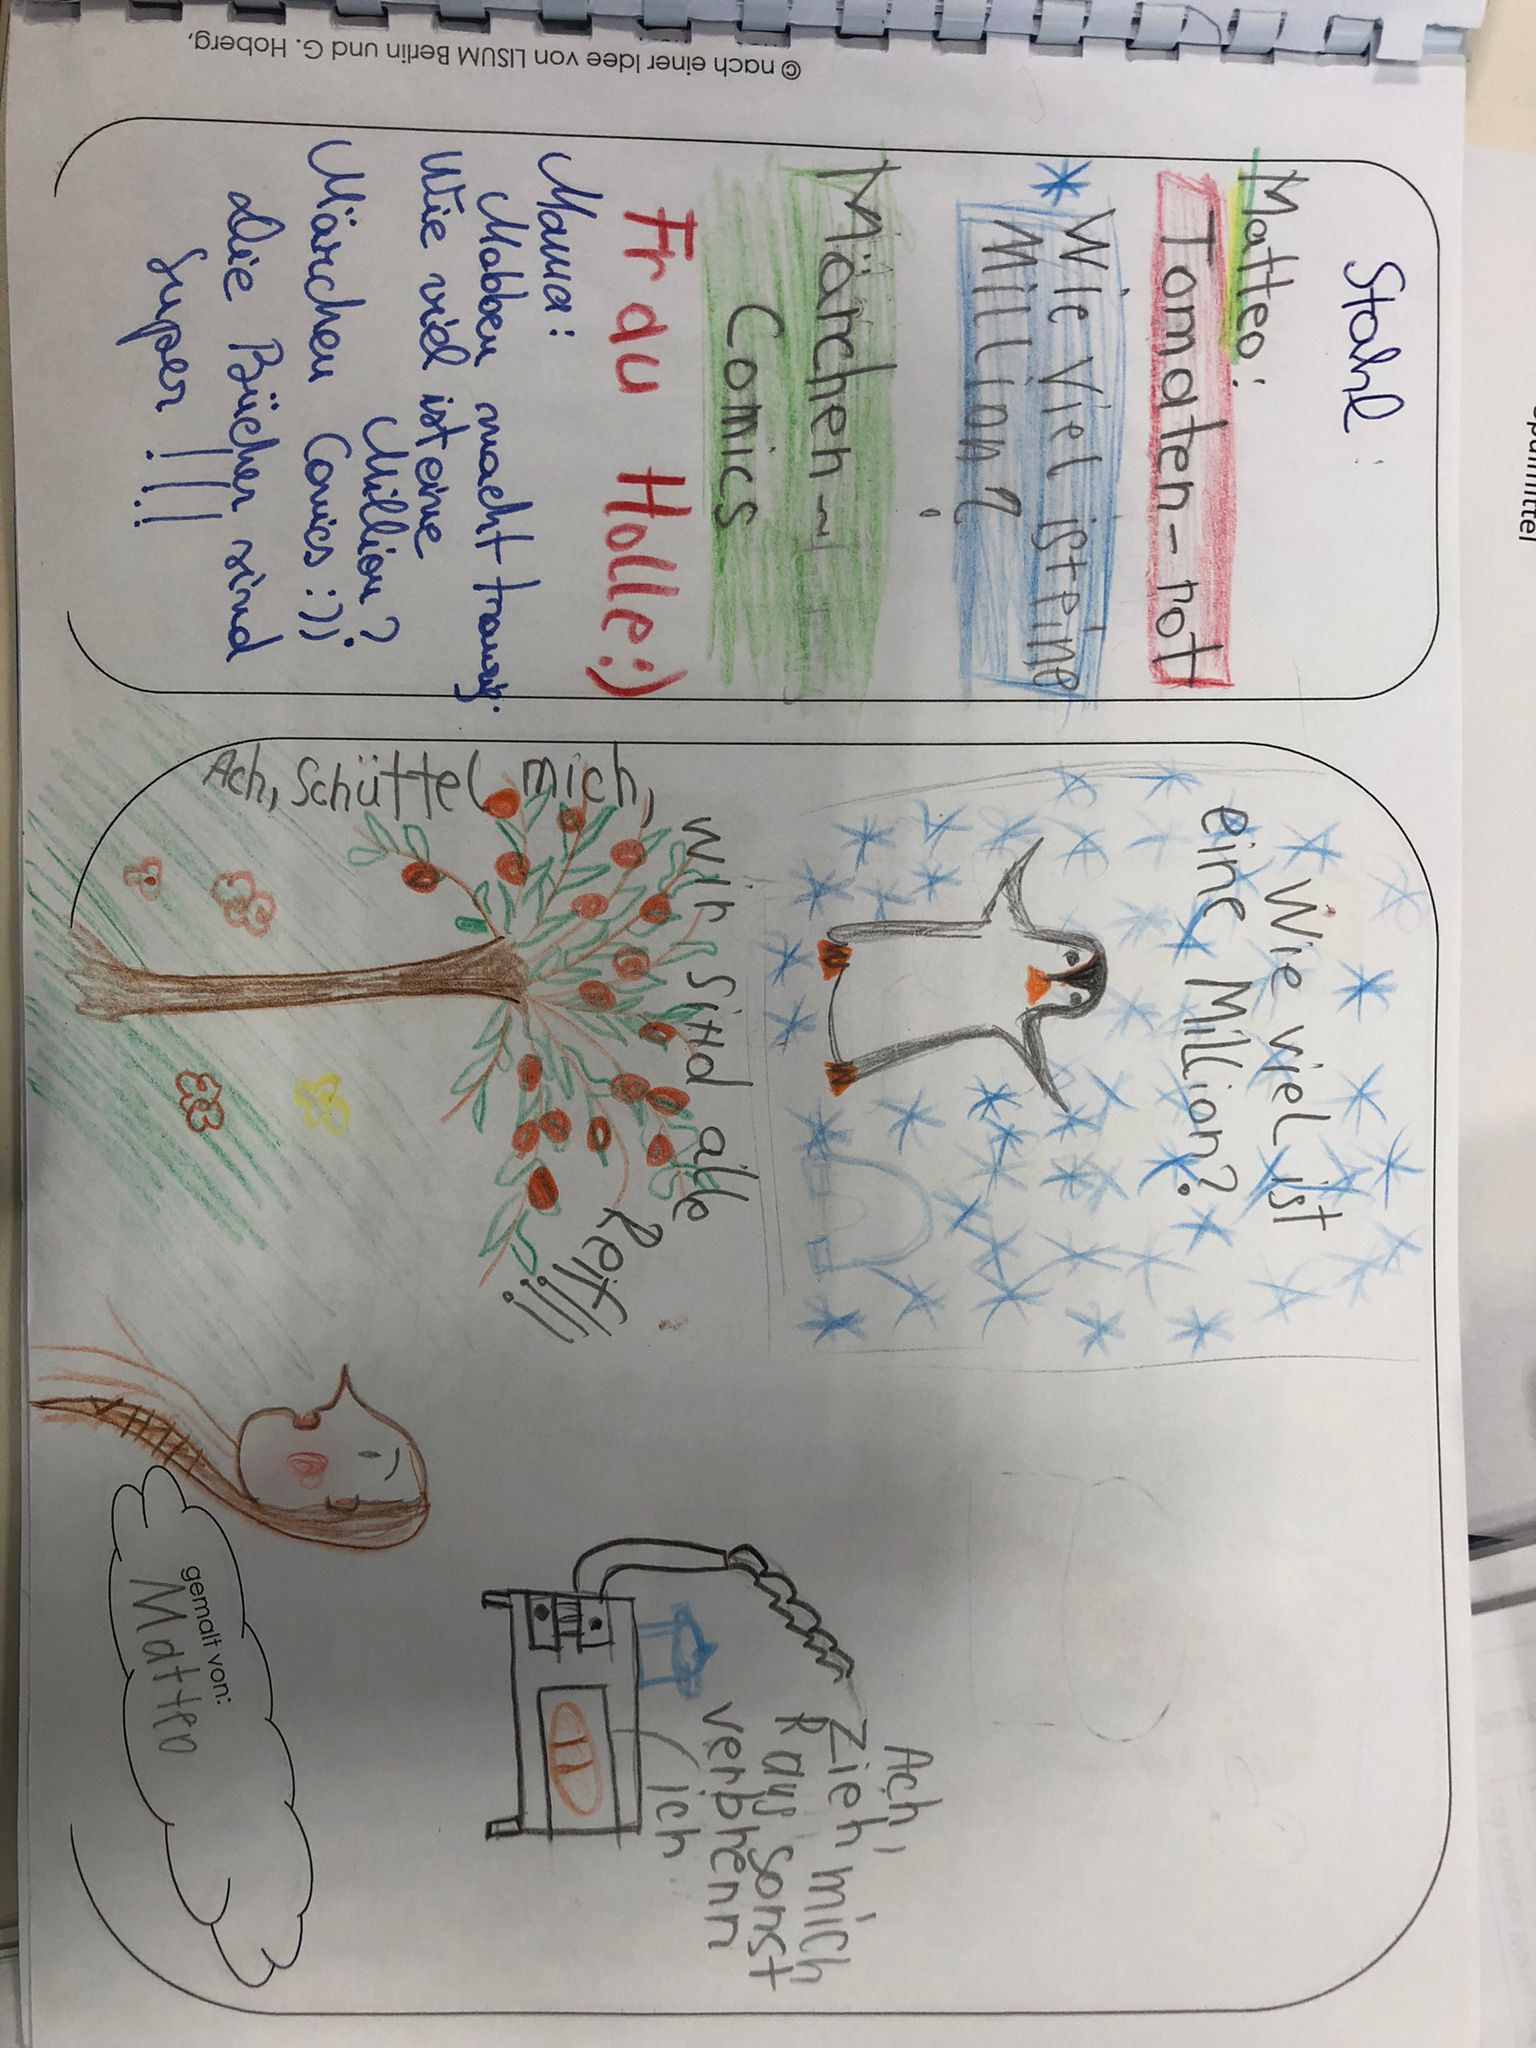 © nach einer Idee von LISUM Berlin und G. Hoberg,
Stahl:
Matteo:
Tomaten-rot
* Wie viel ist eine
Million?
Märchen-
Comics
Frau Holle :)
Mama:
Mobben macht traurig.
Wie viel ist eine
Million?
Märchen Comics :))
die Bücher sind
super !!!!
Wie viel ist
eine Million?
Ach, Schüttel mich,
wir sind alle
Reif!!!
Ach,
Zieh mich
Raus sonst
verbrenn
ich
gemalt von:
Matteo